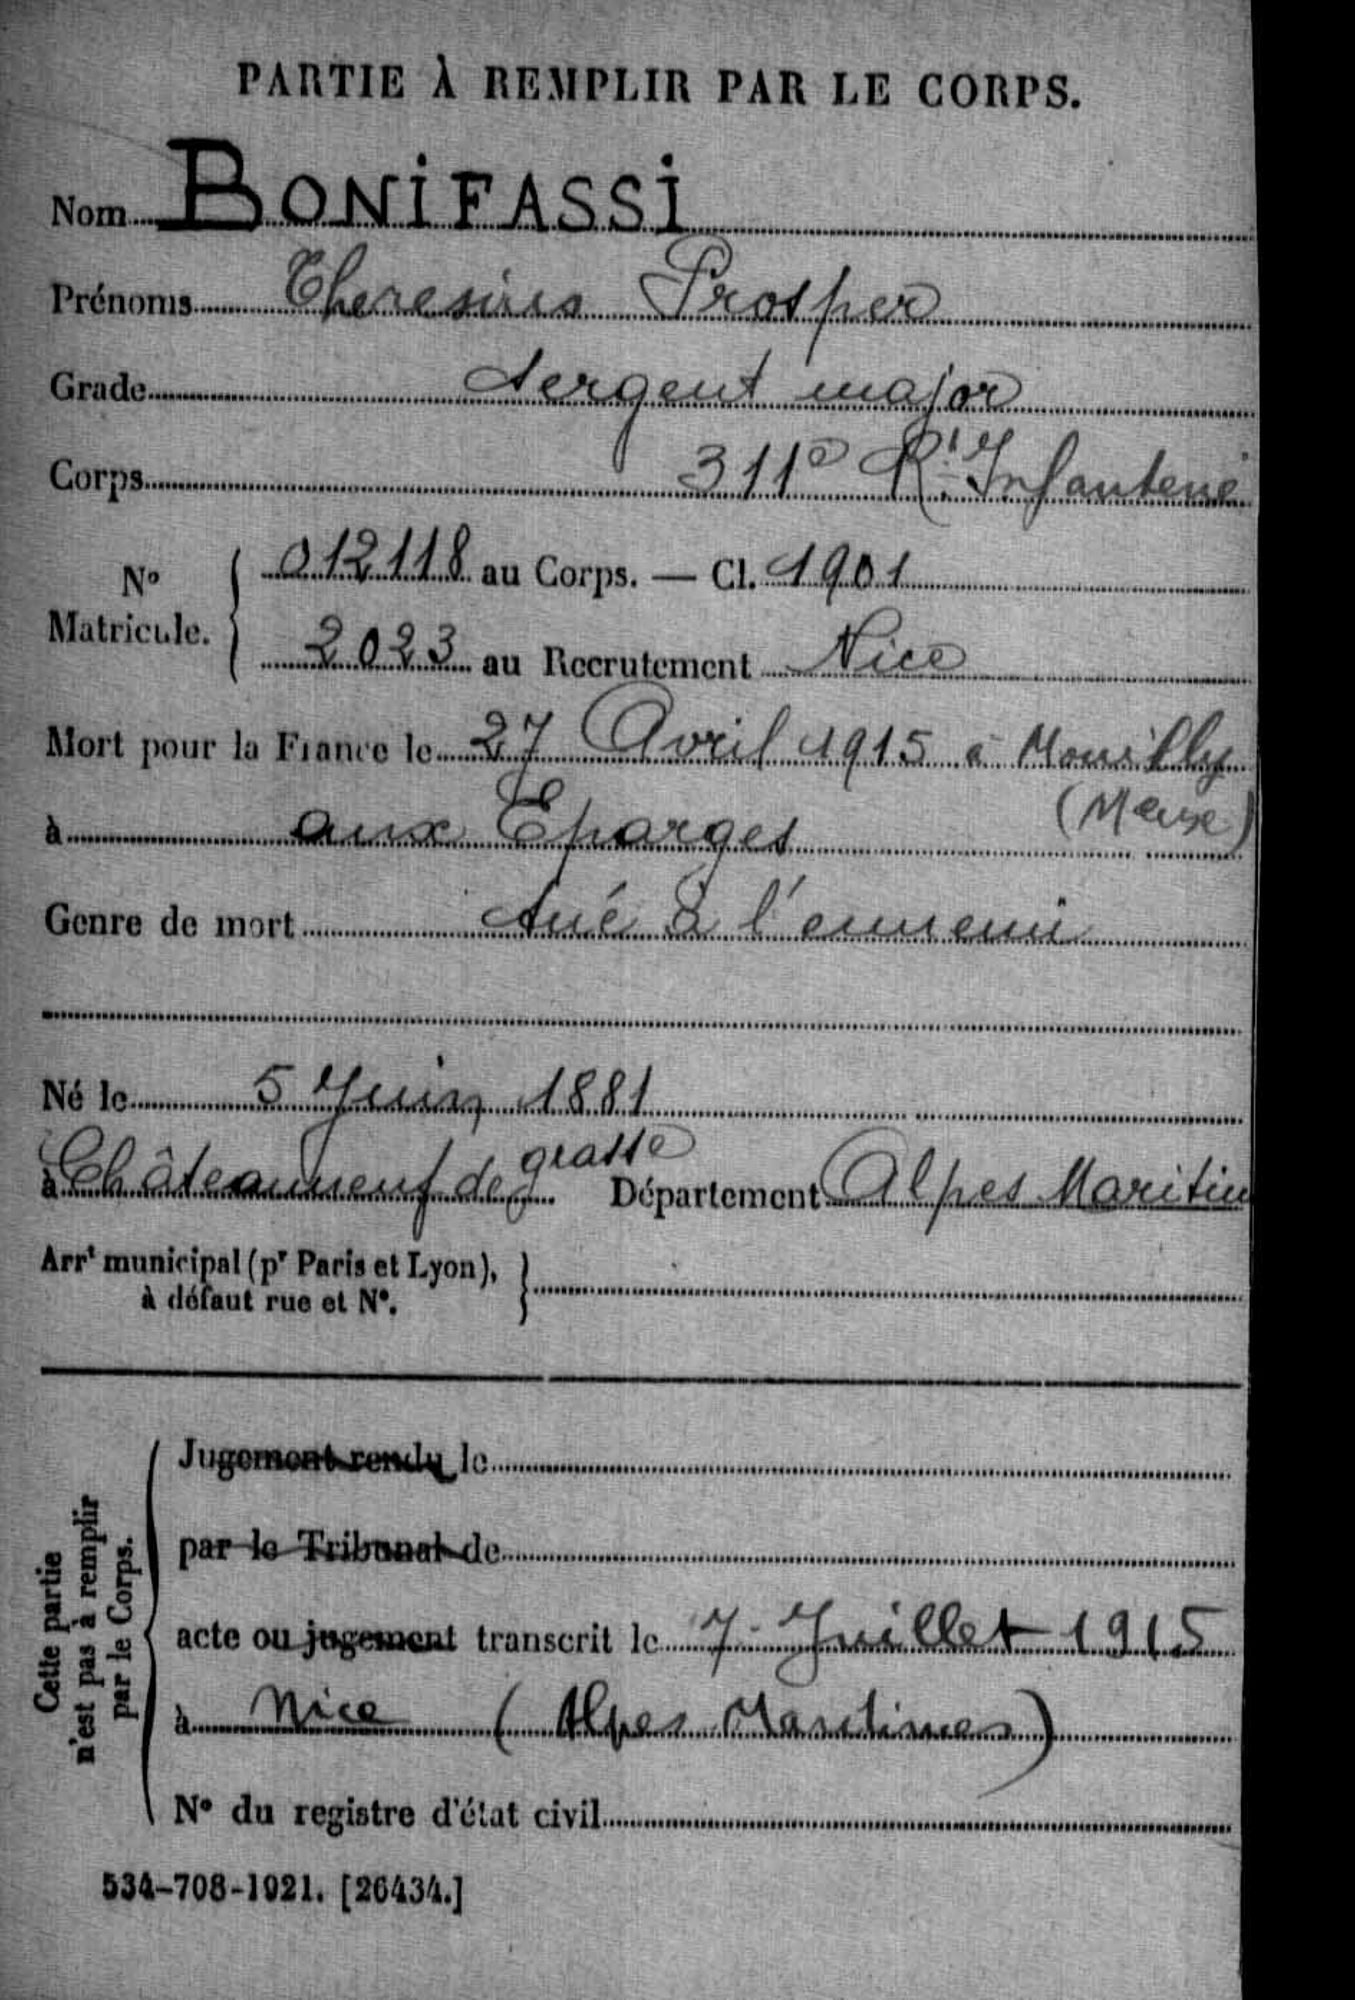 PARTIE À REMPLIR PAR LE CORPS.
Nom BONIFASSI
Prénoms Theresius Prosper
Grade Sergent major
Corps 311e Rt Infanterie
No Matricule. 012118 au Corps. — Cl. 1901
2023 au Recrutement Nice
Mort pour la France le 27 Avril 1915 à Mouilly
(Meuse)
à aux Eparges
Genre de mort tué à l'ennemi
Né le 5 Juin 1881
à Châteauneuf de grasse Département Alpes Maritim
Arrt municipal (pr Paris et Lyon),
à défaut rue et No.
Cette partie
n'est pas à remplir
par le Corps.
Jugement rendu le
par le Tribunal de
acte ou jugement transcrit le 7 Juillet 1915
à Nice (Alpes Maritimes)
No du registre d'état civil
534-708-1921. [26434.]